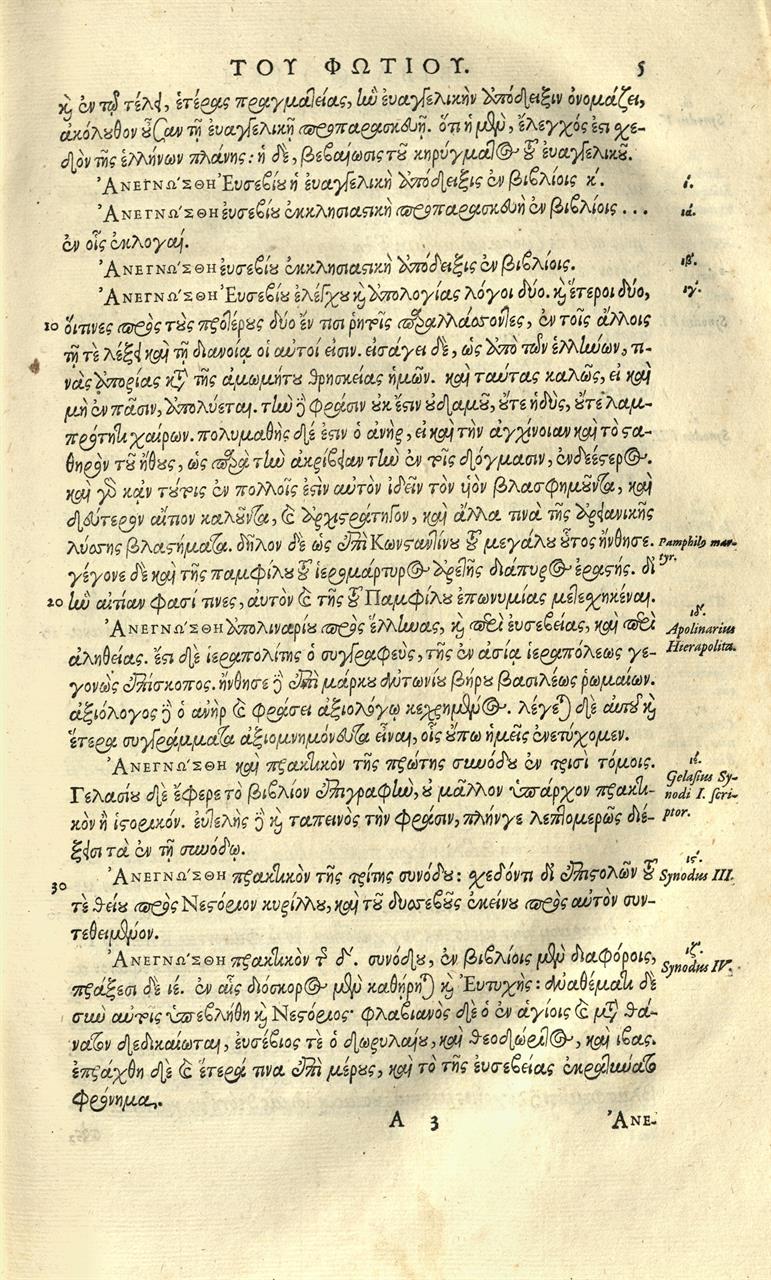 ΤΟΥ ΦΩΤΙΟΥ. 5
καὶ ἐν τῷ τέλει, ἑτέρας πραγματείας, ἣν εὐαγγελικὴν ἀπόδειξιν ὀνομάζει,
ἀκόλουθον οὖσαν τῇ εὐαγγελικῇ προπαρασκευῇ. ὅτι ἡ μὲν, ἔλεγχός ἐστι σχε-
δὸν τῆς ἑλλήνων πλάνης: ἡ δὲ, βεβαίωσις τοῦ κηρύγματος τοῦ εὐαγγελικοῦ.
ἈΝΕΓΝΩΣΘΗ Ἐυσεβίου ἡ εὐαγγελικὴ ἀπόδειξις ἐν βιβλίοις κ΄. ι΄.
ἈΝΕΓΝΩΣΘΗ ἐυσεβίου ἐκκλησιαστικὴ προπαρασκευὴ ἐν βιβλίοις ... ια΄.
ἐν οἷς ἐκλογαί.
ἈΝΕΓΝΩΣΘΗ ἐυσεβίου ἐκκλησιαστικὴ ἀπόδειξις ἐν βιβλίοις. ιβ΄.
ἈΝΕΓΝΩΣΘΗ Ἐυσεβίου ἐλέγχου καὶ ἀπολογίας λόγοι δύο. καὶ ἕτεροι δύο, ιγ΄.
10 οἵτινες πρὸς τοὺς προτέρους δύο ἔν τισι ῥητοῖς παραλλάσσοντες, ἐν τοῖς ἄλλοις
τῇ τὲ λέξει καὶ τῇ διανοίᾳ οἱ αὐτοί εἰσιν. εἰσάγει δὲ, ὡς ἀπὸ τῶν ἑλλήνων, τι-
νὰς ἀπορίας κατὰ τῆς ἀμωμήτου θρησκείας ἡμῶν. καὶ ταύτας καλῶς, εἰ καὶ
μὴ ἐν πᾶσιν, ἀπολύεται. τὴν δὲ φράσιν οὐκ ἔστιν οὐδαμοῦ, οὔτε ἡδὺς, οὔτε λαμ-
πρότητι χαίρων. πολυμαθὴς δέ ἐστιν ὁ ἀνὴρ, εἰ καὶ τὴν ἀγχίνοιαν καὶ τὸ στα-
θηρὸν τοῦ ἤθους, ὡς παρὰ τὴν ἀκρίβειαν τὴν ἐν τοῖς δόγμασιν, ἐνδεέστερος.
καὶ γὰρ κἀν τούτοις ἐν πολλοῖς ἐστὶν αὐτὸν ἰδεῖν τὸν υἱὸν βλασφημοῦντα, καὶ
δεύτερον αἴτιον καλοῦντα, καὶ ἀρχιστράτηγον, καὶ ἄλλα τινὰ τῆς ἀρειανικῆς
λύσσης βλαστήματα. δῆλον δὲ ὡς ἐπὶ Κωνσταντίνου τοῦ μεγάλου οὗτος ἤνθησε. Pamphilo mar-
γέγονε δὲ καὶ τῆς παμφίλου τοῦ ἱερομάρτυρος ἀρετῆς διάπυρος ἐραστής. δι᾿ tyr.
20 ἣν αἰτίαν φασί τινες, αὐτὸν καὶ τῆς τοῦ Παμφίλου ἐπωνυμίας μετεσχηκέναι.
ἈΝΕΓΝΩΣΘΗ ἀπολιναρίου πρὸς ἕλληνας, καὶ περὶ ἐυσεβείας, καὶ περὶ ιδ΄. Apolinarius
ἀληθείας. ἔστι δὲ ἱεραπολίτης ὁ συγγραφεὺς, τῆς ἐν ἀσίᾳ ἱεραπόλεως γε- Hierapolita.
γονὼς ἐπίσκοπος. ἤνθησε δὲ ἐπὶ μάρκου ἀντωνίου βήρου βασιλέως ῥωμαίων.
ἀξιόλογος δὲ ὁ ἀνὴρ καὶ φράσει ἀξιολόγῳ κεχρημένος. λέγεται δὲ αὐτοῦ καὶ
ἕτερα συγγράμματα ἀξιομνημόνευτα εἶναι, οἷς οὔπω ἡμεῖς ἐνετύχομεν.
ἈΝΕΓΝΩΣΘΗ καὶ πρακτικὸν τῆς πρώτης συνόδου ἐν τρισὶ τόμοις. ιε΄.
Γελασίου δὲ ἔφερε τὸ βιβλίον ἐπιγραφὴν, οὐ μᾶλλον ὑπάρχον πρακτι- Gelasius Sy-
κὸν ἢ ἱστορικόν. εὐτελὴς δὲ καὶ ταπεινὸς τὴν φράσιν, πλήν γε λεπτομερῶς διέ- nodi I. scri-
ξεισι τὰ ἐν τῇ συνόδῳ. ptor.
30 ἈΝΕΓΝΩΣΘΗ πρακτικὸν τῆς τρίτης συνόδου: σχεδόν τι δι᾿ ἐπιστολῶν τοῦ ις΄. Synodus III.
τὲ θείου πρὸς Νεστόριον κυρίλλου, καὶ τοῦ δυσσεβοῦς ἐκείνου πρὸς αὐτὸν συν-
τεθειμένον.
ἈΝΕΓΝΩΣΘΗ πρακτικὸν τῆς δ΄. συνόδου, ἐν βιβλίοις μὲν διαφόροις, ιζ΄.
πράξεσι δὲ ιέ. ἐν αἷς διόσκορος μὲν καθήρηται καὶ Ἐυτυχής: ἀναθέματι δὲ Synodus IV.
σὺν αὐτοῖς ὑπεβλήθη καὶ Νεστόριος· φλαβιανὸς δὲ ὁ ἐν ἁγίοις καὶ μετὰ θά-
νατον δεδικαίωται, ἐυσέβιος τὲ ὁ δωρυλαίου, καὶ θεοδώριτος, καὶ ἴβας.
ἐπράχθη δὲ καὶ ἕτερά τινα ἐπὶ μέρους, καὶ τὸ τῆς ἐυσεβείας ἐκρατύνατο
φρόνημα.
A 3 ἈΝΕ-